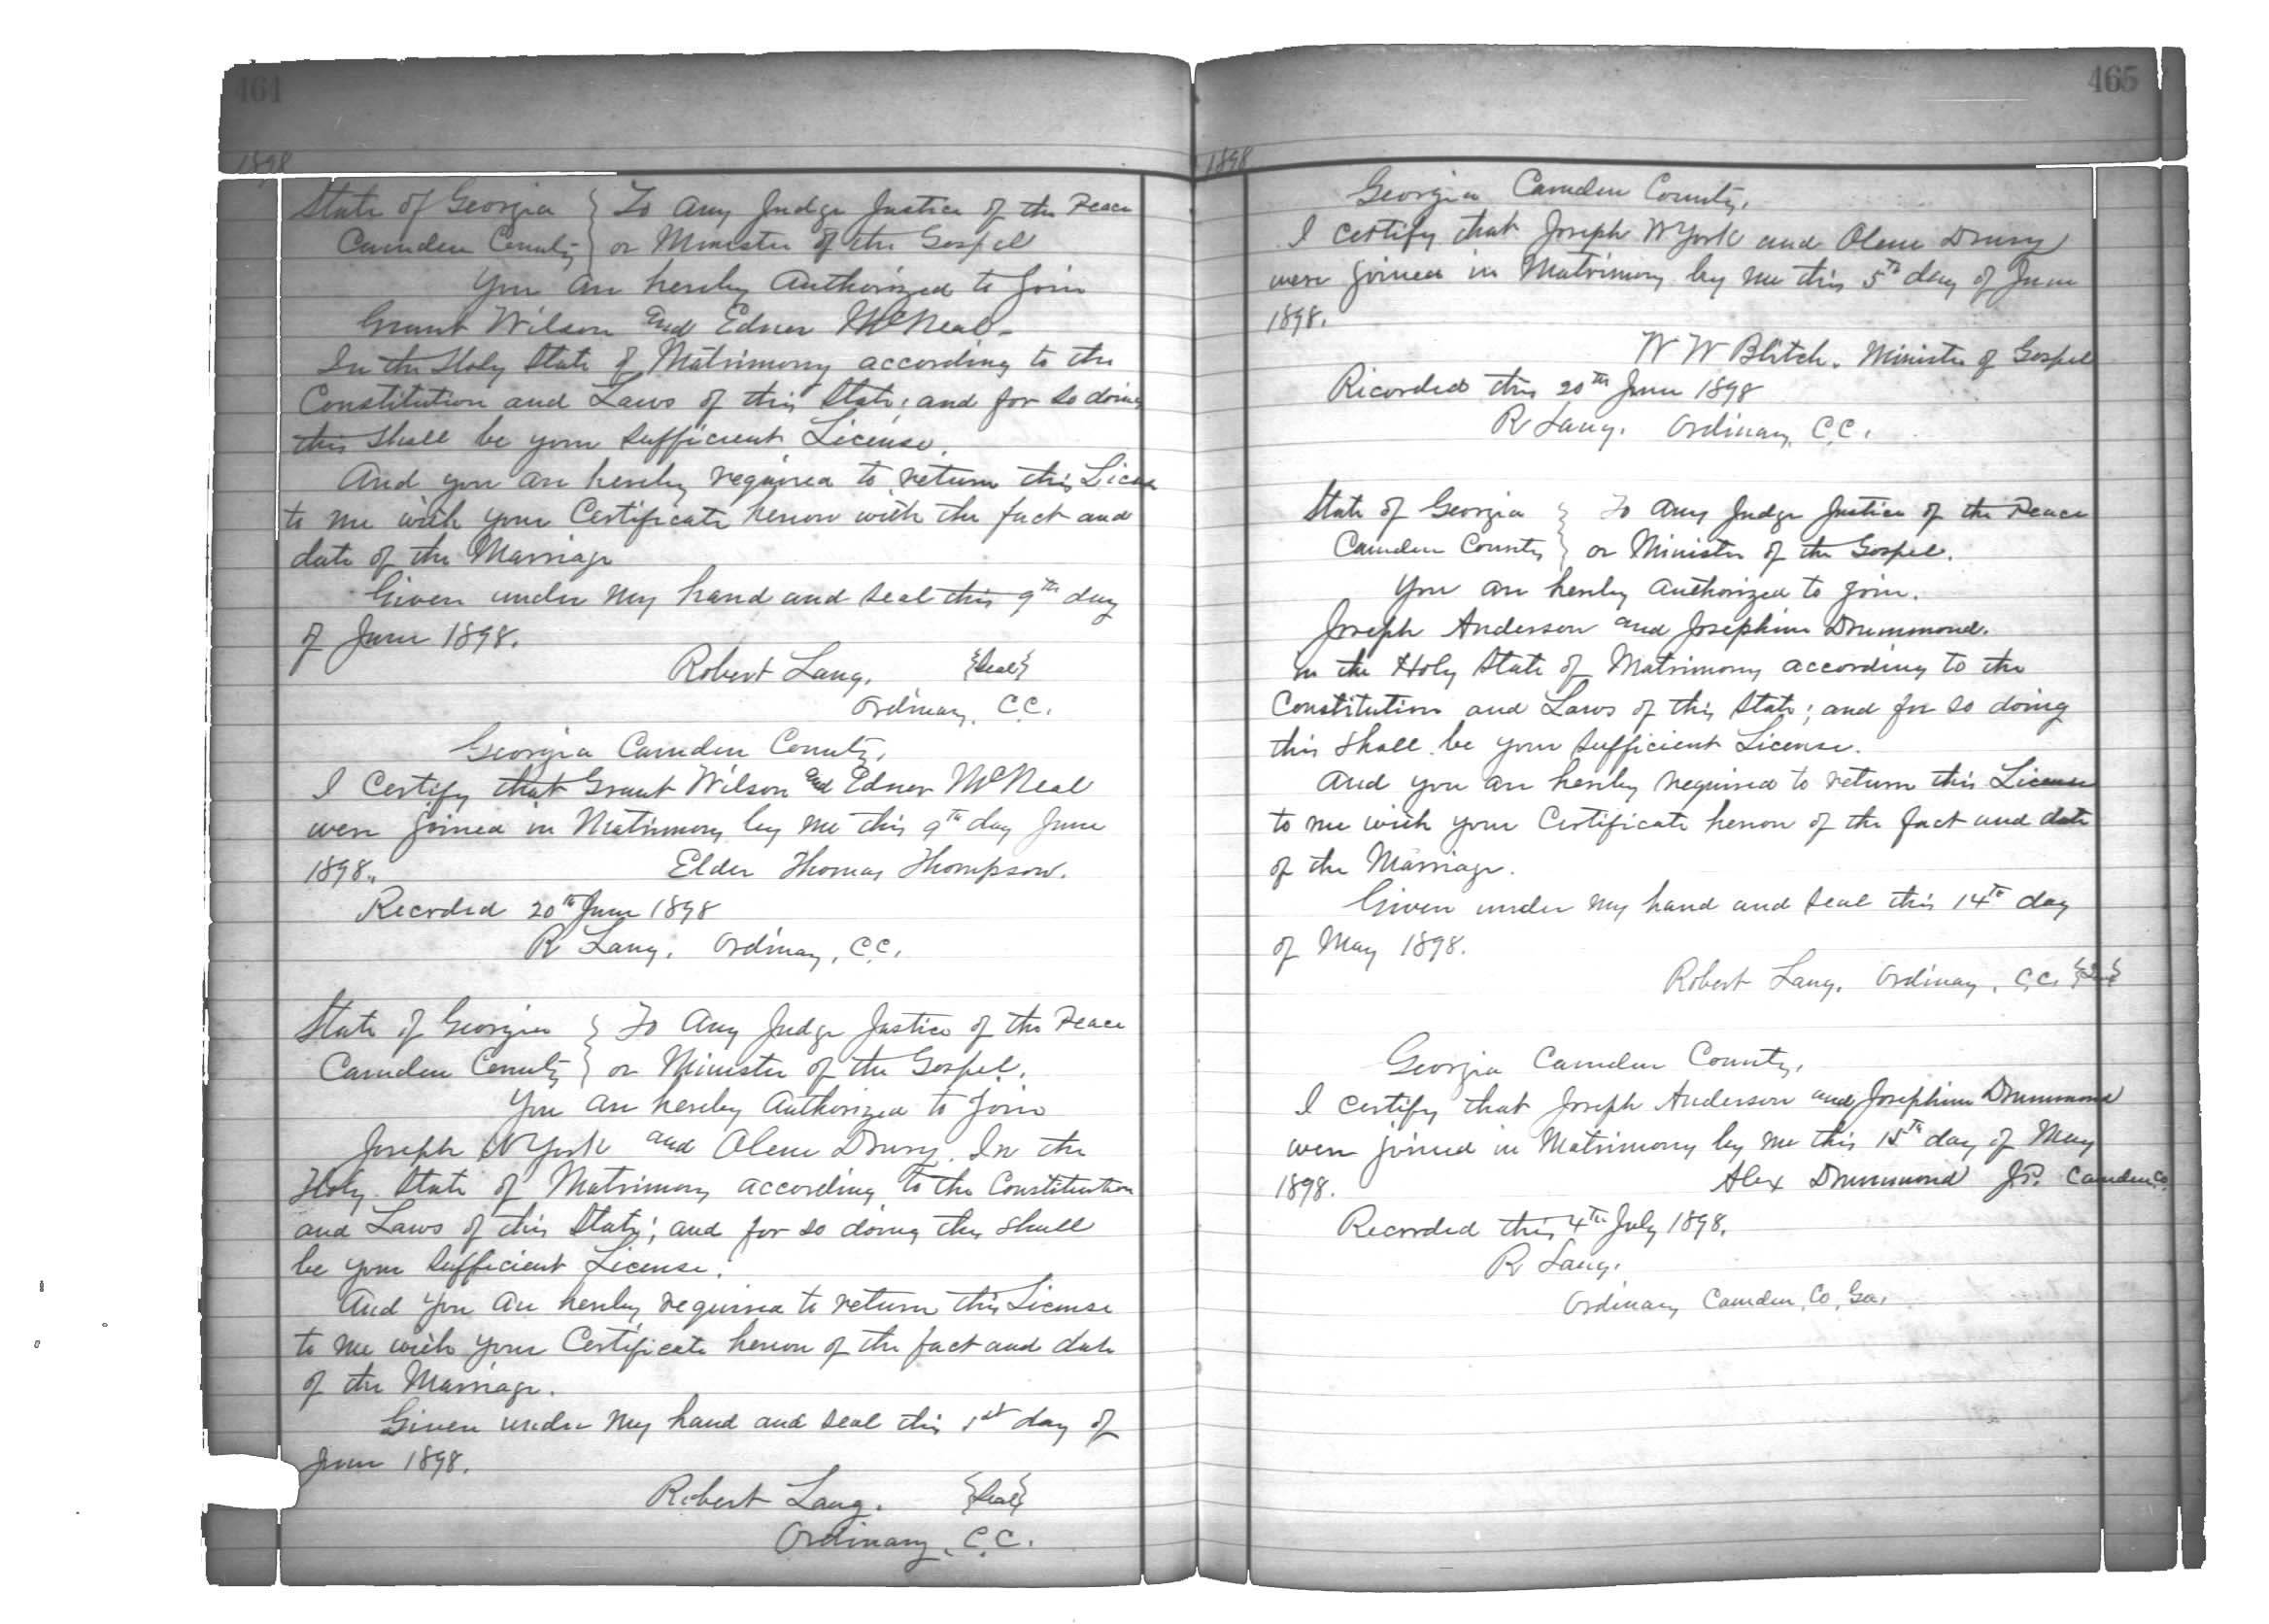 464
1898
State of Georgia } To Any Judge Justice of the Peace
Camden County } or Minister of the Gospel
You are hereby Authorized to Join
Grant Wilson and Edner McNeal-
In the Holy State of Matrimony according to the
Constitution and Laws of this State; and for so doing
this shall be your sufficient License.
And you are hereby required to return this License
to me with your Certificate hereon with the fact and
date of the Marriage
Given under my hand and seal this 9th day
of June 1898.
Robert Lang. {Seal}
Ordinary, C.C.
Georgia Camden County,
I Certify that Grant Wilson and Edner McNeal
were joined in Matrimony by me this 9th day June
1898. Elder Thomas Thompson.
Recorded 20th June 1898
R Lang. Ordinary, C.C.
State of Georgia } To Any Judge Justice of the Peace
Camden County } or Minister of the Gospel.
You are hereby Authorized to Join
Joseph W York and Olene Drury. In the
Holy State of Matrimony according to the Constitution
and Laws of this State; and for so doing this shall
be your sufficient License.
And you are hereby required to return this License
to me with your Certificate hereon of the fact and date
of the Marriage.
Given under my hand and seal this 1st day of
June 1898.
Robert Lang. {Seal}
Ordinary, C.C.
465
1898
Georgia Camden County,
I certify that Joseph W York and Olene Drury
were joined in Matrimony by me this 5th day of June
1898.
W W Blitch. Minister of Gospel
Recorded this 20th June 1898
R Lang. Ordinary, C.C.
State of Georgia } To Any Judge Justice of the Peace
Camden County } or Minister of the Gospel.
You are hereby authorized to join.
Joseph Anderson and Josephine Drummond.
in the Holy State of Matrimony according to the
Constitution and Laws of this State; and for so doing
this shall be your sufficient License.
And you are hereby required to return this License
to me with your Certificate hereon of the fact and date
of the Marriage.
Given under my hand and seal this 14th day
of May 1898.
Robert Lang. Ordinary, C.C. {Seal}
Georgia Camden County,
I certify that Joseph Anderson and Josephine Drummond
were joined in Matrimony by me this 15th day of May
1898. Alex Drummond J.P. Camden Co.
Recorded this 4th July 1898.
R Lang.
Ordinary Camden, Co, Ga.